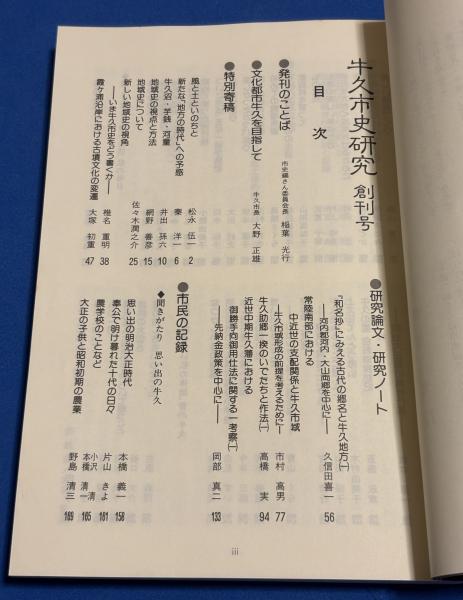 牛久市史研究 創刊号
目次
●発刊のことば 市史編さん委員会長 稲葉 光行
●文化都市牛久を目指して 牛久市長 大野 正雄
●特別寄稿
風と土といのちと 松永 伍一 2
新たな「地方の時代」への予感 秦 洋一 6
牛久沼・芋銭・河童 井出 孫六 10
地域史の視点と方法 網野 善彦 15
地域史について 佐々木潤之介 25
新しい地域史の視角
――いま牛久市史をどう書くか―― 椎名 重明 38
霞ヶ浦沿岸における古墳文化の変遷 大塚 初重 47
●研究論文・研究ノート
『和名抄』にみえる古代の郷名と牛久地方(一)
――河内郡河内・大山両郷を中心に―― 久信田喜一 56
常陸南部における
中近世の支配関係と牛久市域
――牛久市域形成の前提を考えるために―― 市村 高男 77
牛久助郷一揆のいでたちと作法(一) 高橋 実 94
近世中期牛久藩における
御勝手向御用仕法に関する一考察(一)
――先納金政策を中心に―― 岡部 真二 133
●市民の記録
◆聞きがたり 思い出の牛久
思い出の明治大正時代 本橋 義一 158
奉公で明け暮れた十代の日々 片山 きよ 161
農学校のことなど 小沢 清
本橋 清一 165
大正の子供と昭和初期の農業 野島 清三 169
iii